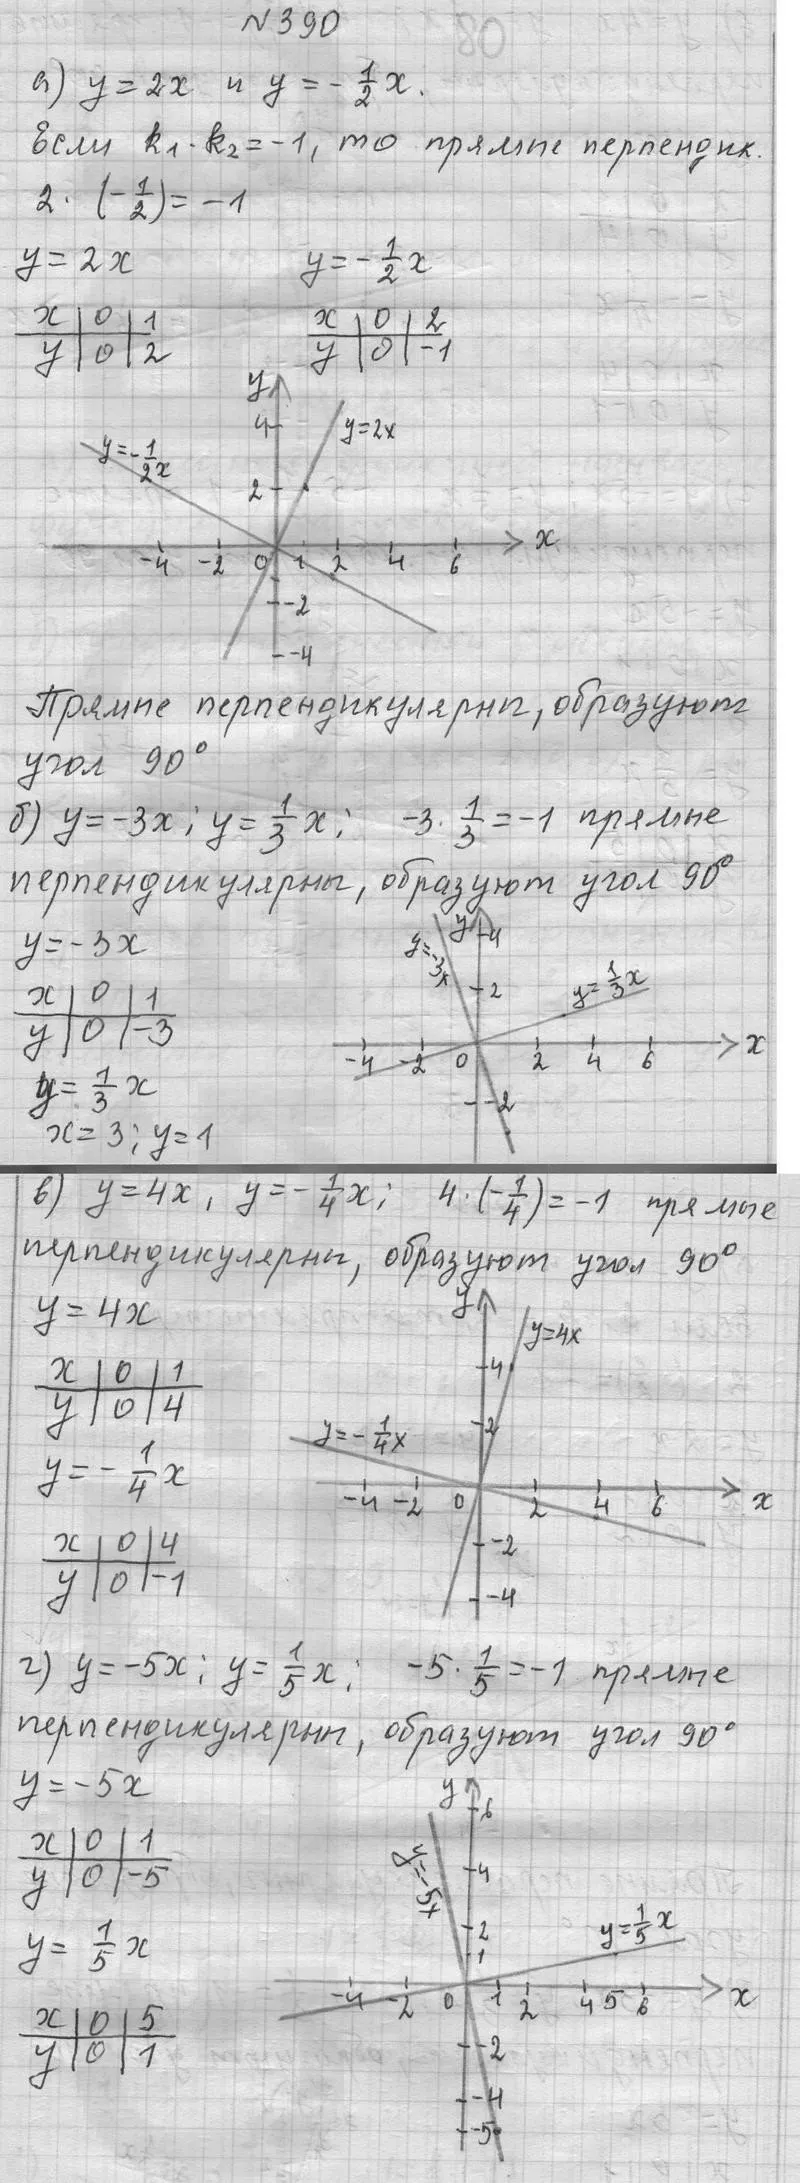 N390
а) y = 2x и y = -1/2 x.
Если k₁ · k₂ = -1, то прямые перпендик.
2 · (-1/2) = -1
y = 2x y = -1/2 x
x | 0 | 1 x | 0 | 2
y | 0 | 2 y | 0 | -1
y
4
y = -1/2 x
y=2x
2
-4 -2 0 1 2 4 6 x
-2
-4
Прямые перпендикулярны, образуют
угол 90°
б) y = -3x; y = 1/3 x; -3 · 1/3 = -1 прямые
перпендикулярны, образуют угол 90°
y = -3x
x | 0 | 1
y | 0 | -3
y = 1/3 x
x = 3; y = 1
y
4
y=-3x
2
y = 1/3 x
-4 -2 0 2 4 6 x
-2
в) y = 4x, y = -1/4 x; 4 · (-1/4) = -1 прямые
перпендикулярны, образуют угол 90°
y = 4x
x | 0 | 1
y | 0 | 4
y = -1/4 x
x | 0 | 4
y | 0 | -1
y
y=4x
4
2
y = -1/4 x
-4 -2 0 2 4 6 x
-2
-4
г) y = -5x; y = 1/5 x; -5 · 1/5 = -1 прямые
перпендикулярны, образуют угол 90°
y = -5x
x | 0 | 1
y | 0 | -5
y = 1/5 x
x | 0 | 5
y | 0 | 1
y
6
y=-5x
4
2
1
y = 1/5 x
-4 -2 0 1 2 4 5 6 x
-2
-4
-5